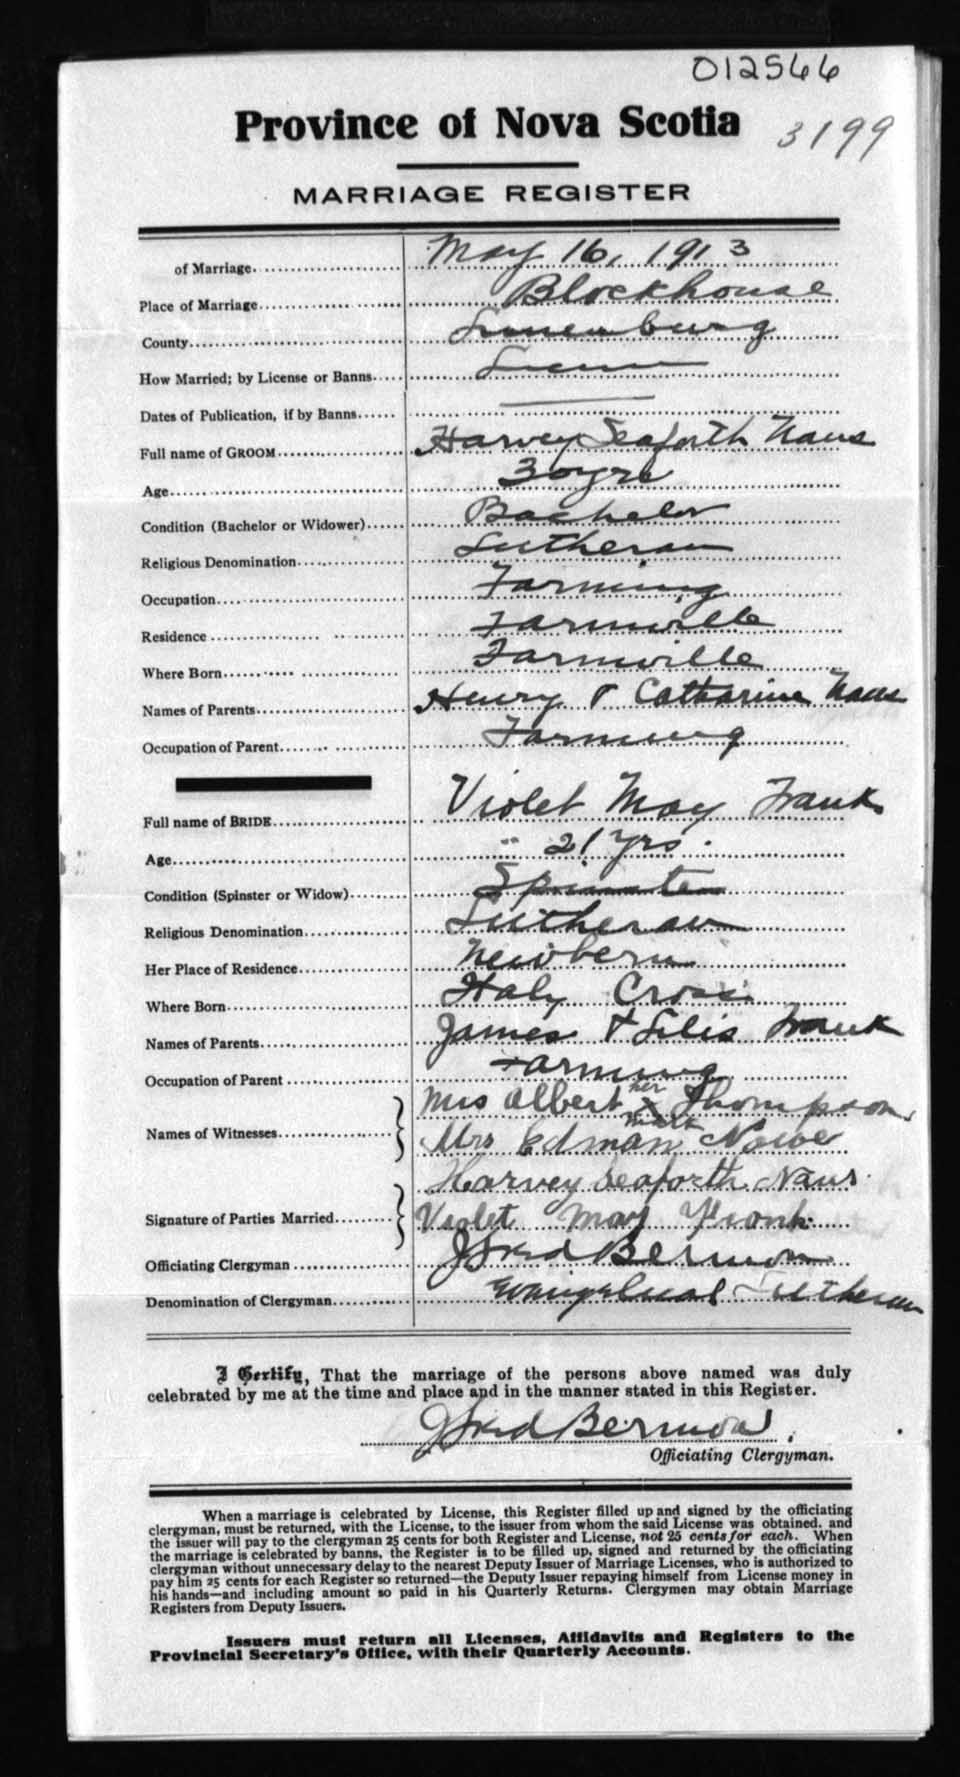 012566
Province of Nova Scotia
3199
MARRIAGE REGISTER
of Marriage May 16, 1913
Place of Marriage Blockhouse
County Lunenburg
How Married; by License or Banns License
Dates of Publication, if by Banns
Full name of GROOM Harvey Seaforth Naus
Age 30 yrs
Condition (Bachelor or Widower) Bachelor
Religious Denomination Lutheran
Occupation Farming
Residence Farmville
Where Born Farmville
Names of Parents Henry & Catharine Naus
Occupation of Parent Farming
Full name of BRIDE Violet May Frank
Age 21 Yrs.
Condition (Spinster or Widow) Spinster
Religious Denomination Lutheran
Her Place of Residence Newbern
Where Born Italy Cross
Names of Parents James & Frank
Occupation of Parent Farming
Mrs Albert her x mark Thompson
Names of Witnesses
Mrs Edman Nowe
Harvey Seaforth Naus
Signature of Parties Married Violet May Frank
Officiating Clergyman J Fred Bermon
Denomination of Clergyman Evangelical Lutheran
I Certify, That the marriage of the persons above named was duly
celebrated by me at the time and place and in the manner stated in this Register.
J Fred Bermon
Officiating Clergyman.
When a marriage is celebrated by License, this Register filled up and signed by the officiating
clergyman, must be returned, with the License, to the issuer from whom the said License was obtained, and
the issuer will pay to the clergyman 25 cents for both Register and License, not 25 cents for each. When
the marriage is celebrated by banns, the Register is to be filled up, signed and returned by the officiating
clergyman without unnecessary delay to the nearest Deputy Issuer of Marriage Licenses, who is authorized to
pay him 25 cents for each Register so returned—the Deputy Issuer repaying himself from License money in
his hands—and including amount so paid in his Quarterly Returns. Clergymen may obtain Marriage
Registers from Deputy Issuers.
Issuers must return all Licenses, Affidavits and Registers to the
Provincial Secretary's Office, with their Quarterly Accounts.